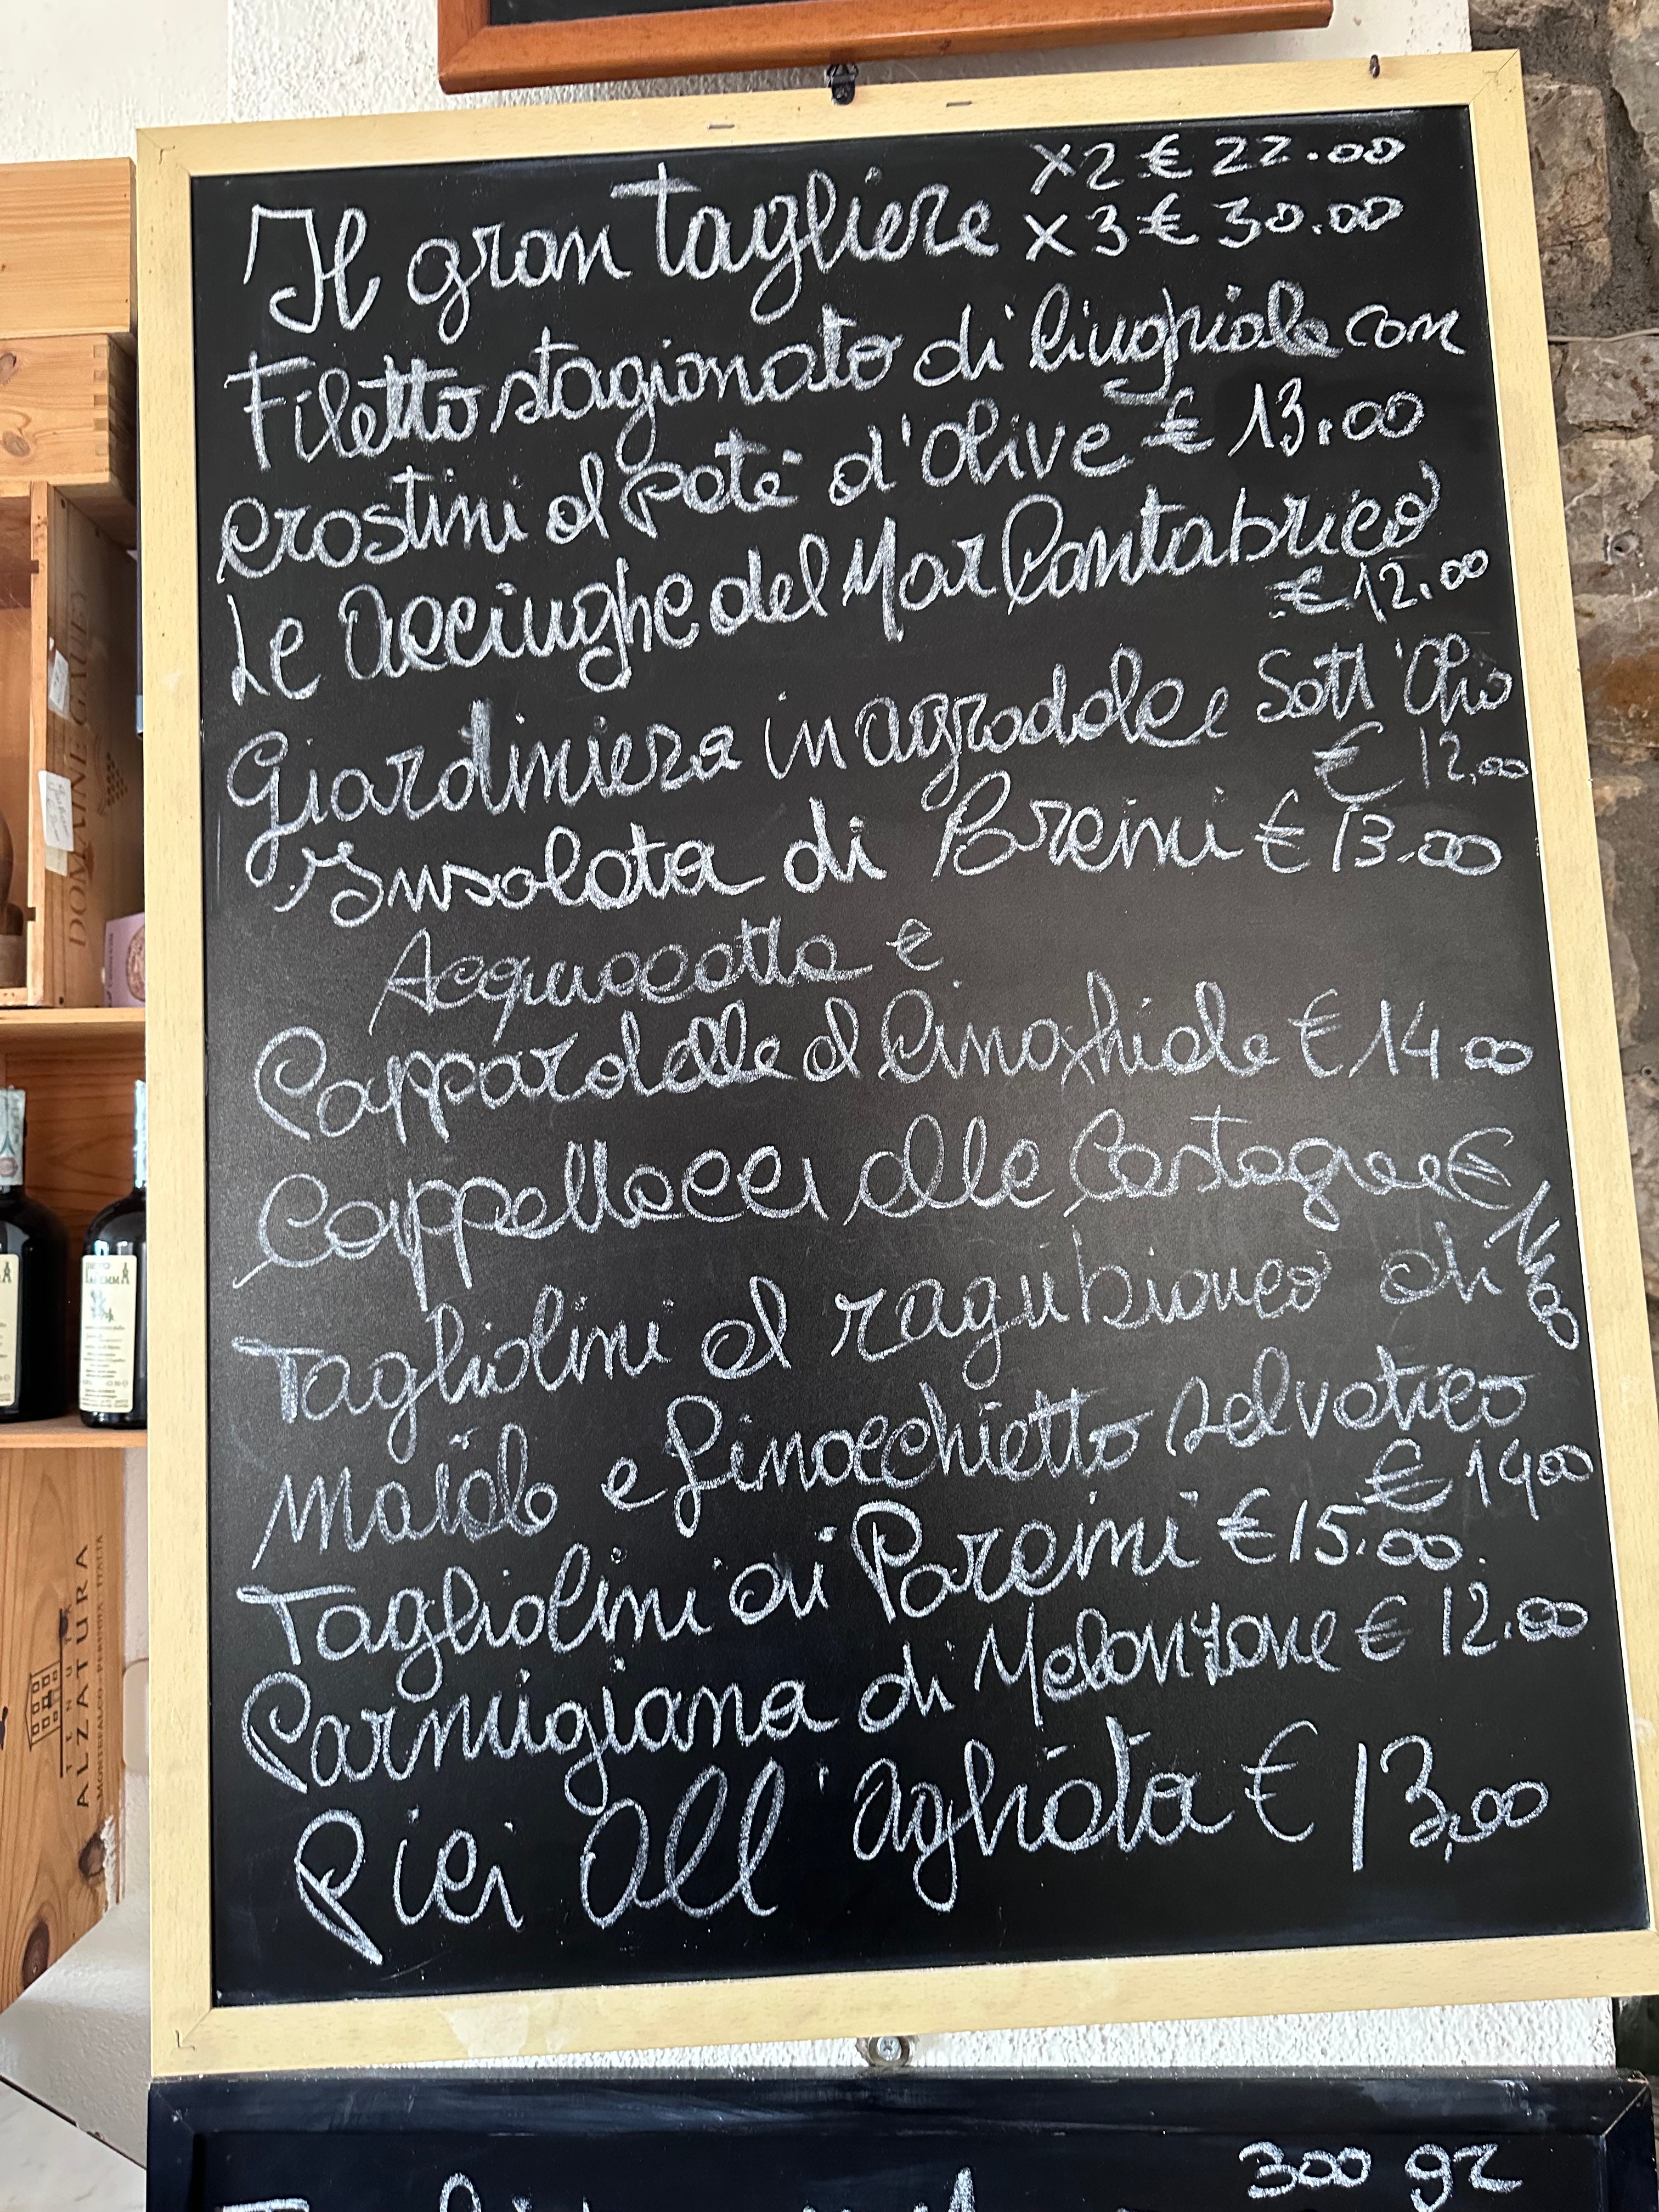 Il gran Tagliere x2 € 22.00
x3 € 30.00
Filetto stagionato di Cinghiale con
crostini al Patè d'Olive € 13.00
Le Acciughe del Mar Cantabrico
€ 12.00
Giardiniera in agrodolce e Sott'Olio
€ 12,00
Insalata di Porcini € 13.00
Acquacotta e
Pappardelle al Cinghiale € 14 00
Cappellacci alle Castagne €
Tagliolini al ragù bianco di
maiale e finocchietto selvatico
€ 14 00
Tagliolini ai Porcini € 15.00.
Parmigiana di Melanzane € 12.00
Pici all'Agliata € 13,00
300 gr
DOMAINE GAUBY
TENUTA
ALZATURA
MONTEFALCO-PERUGIA-ITALIA